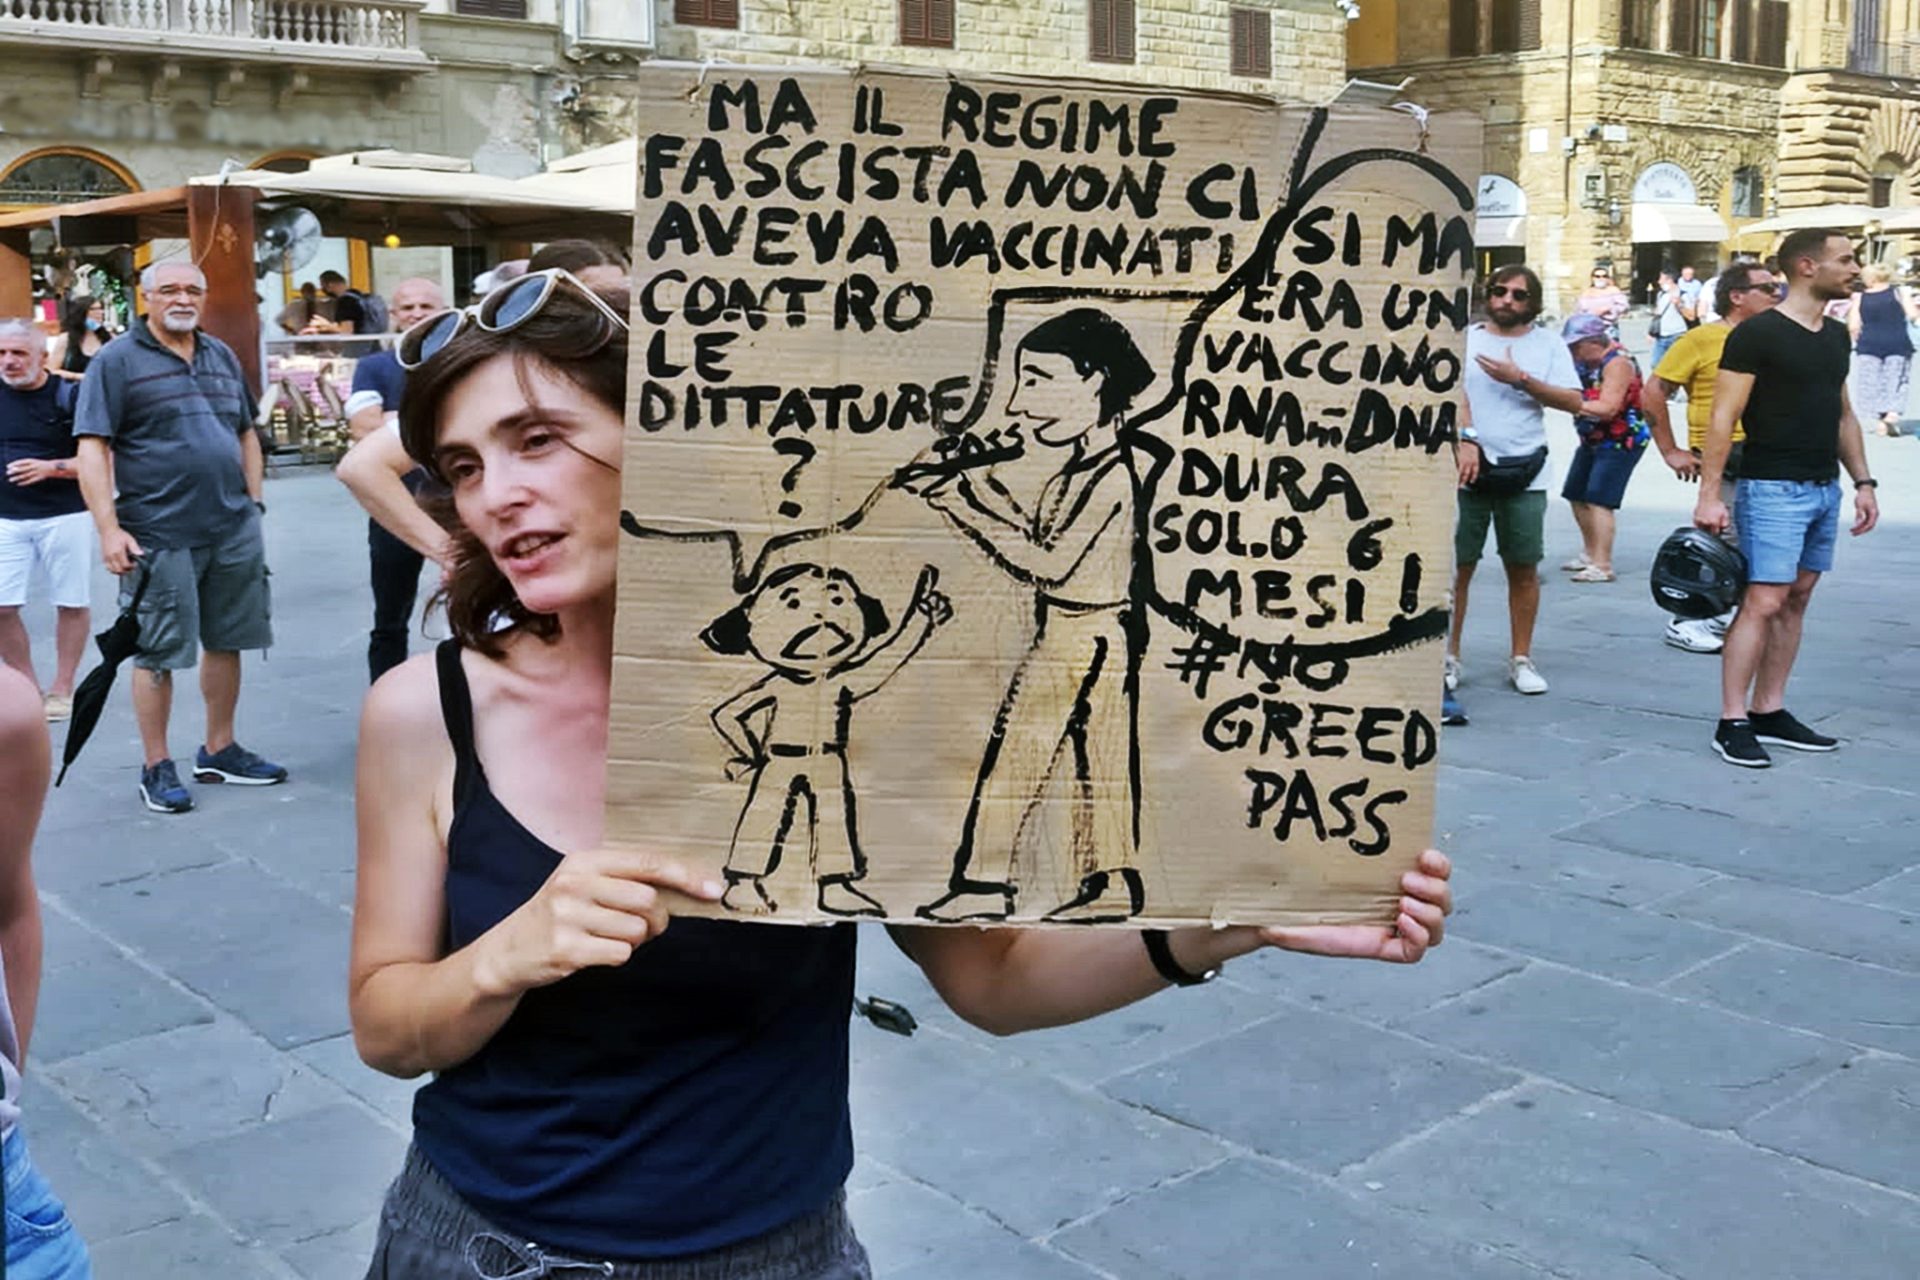 MA IL REGIME
FASCISTA NON CI
AVEVA VACCINATI
CONTRO
LE
DITTATURE
?
PASS
SI MA
ERA UN
VACCINO
RNA-m-DNA
DURA
SOLO 6
MESI !
#NO
GREED
PASS